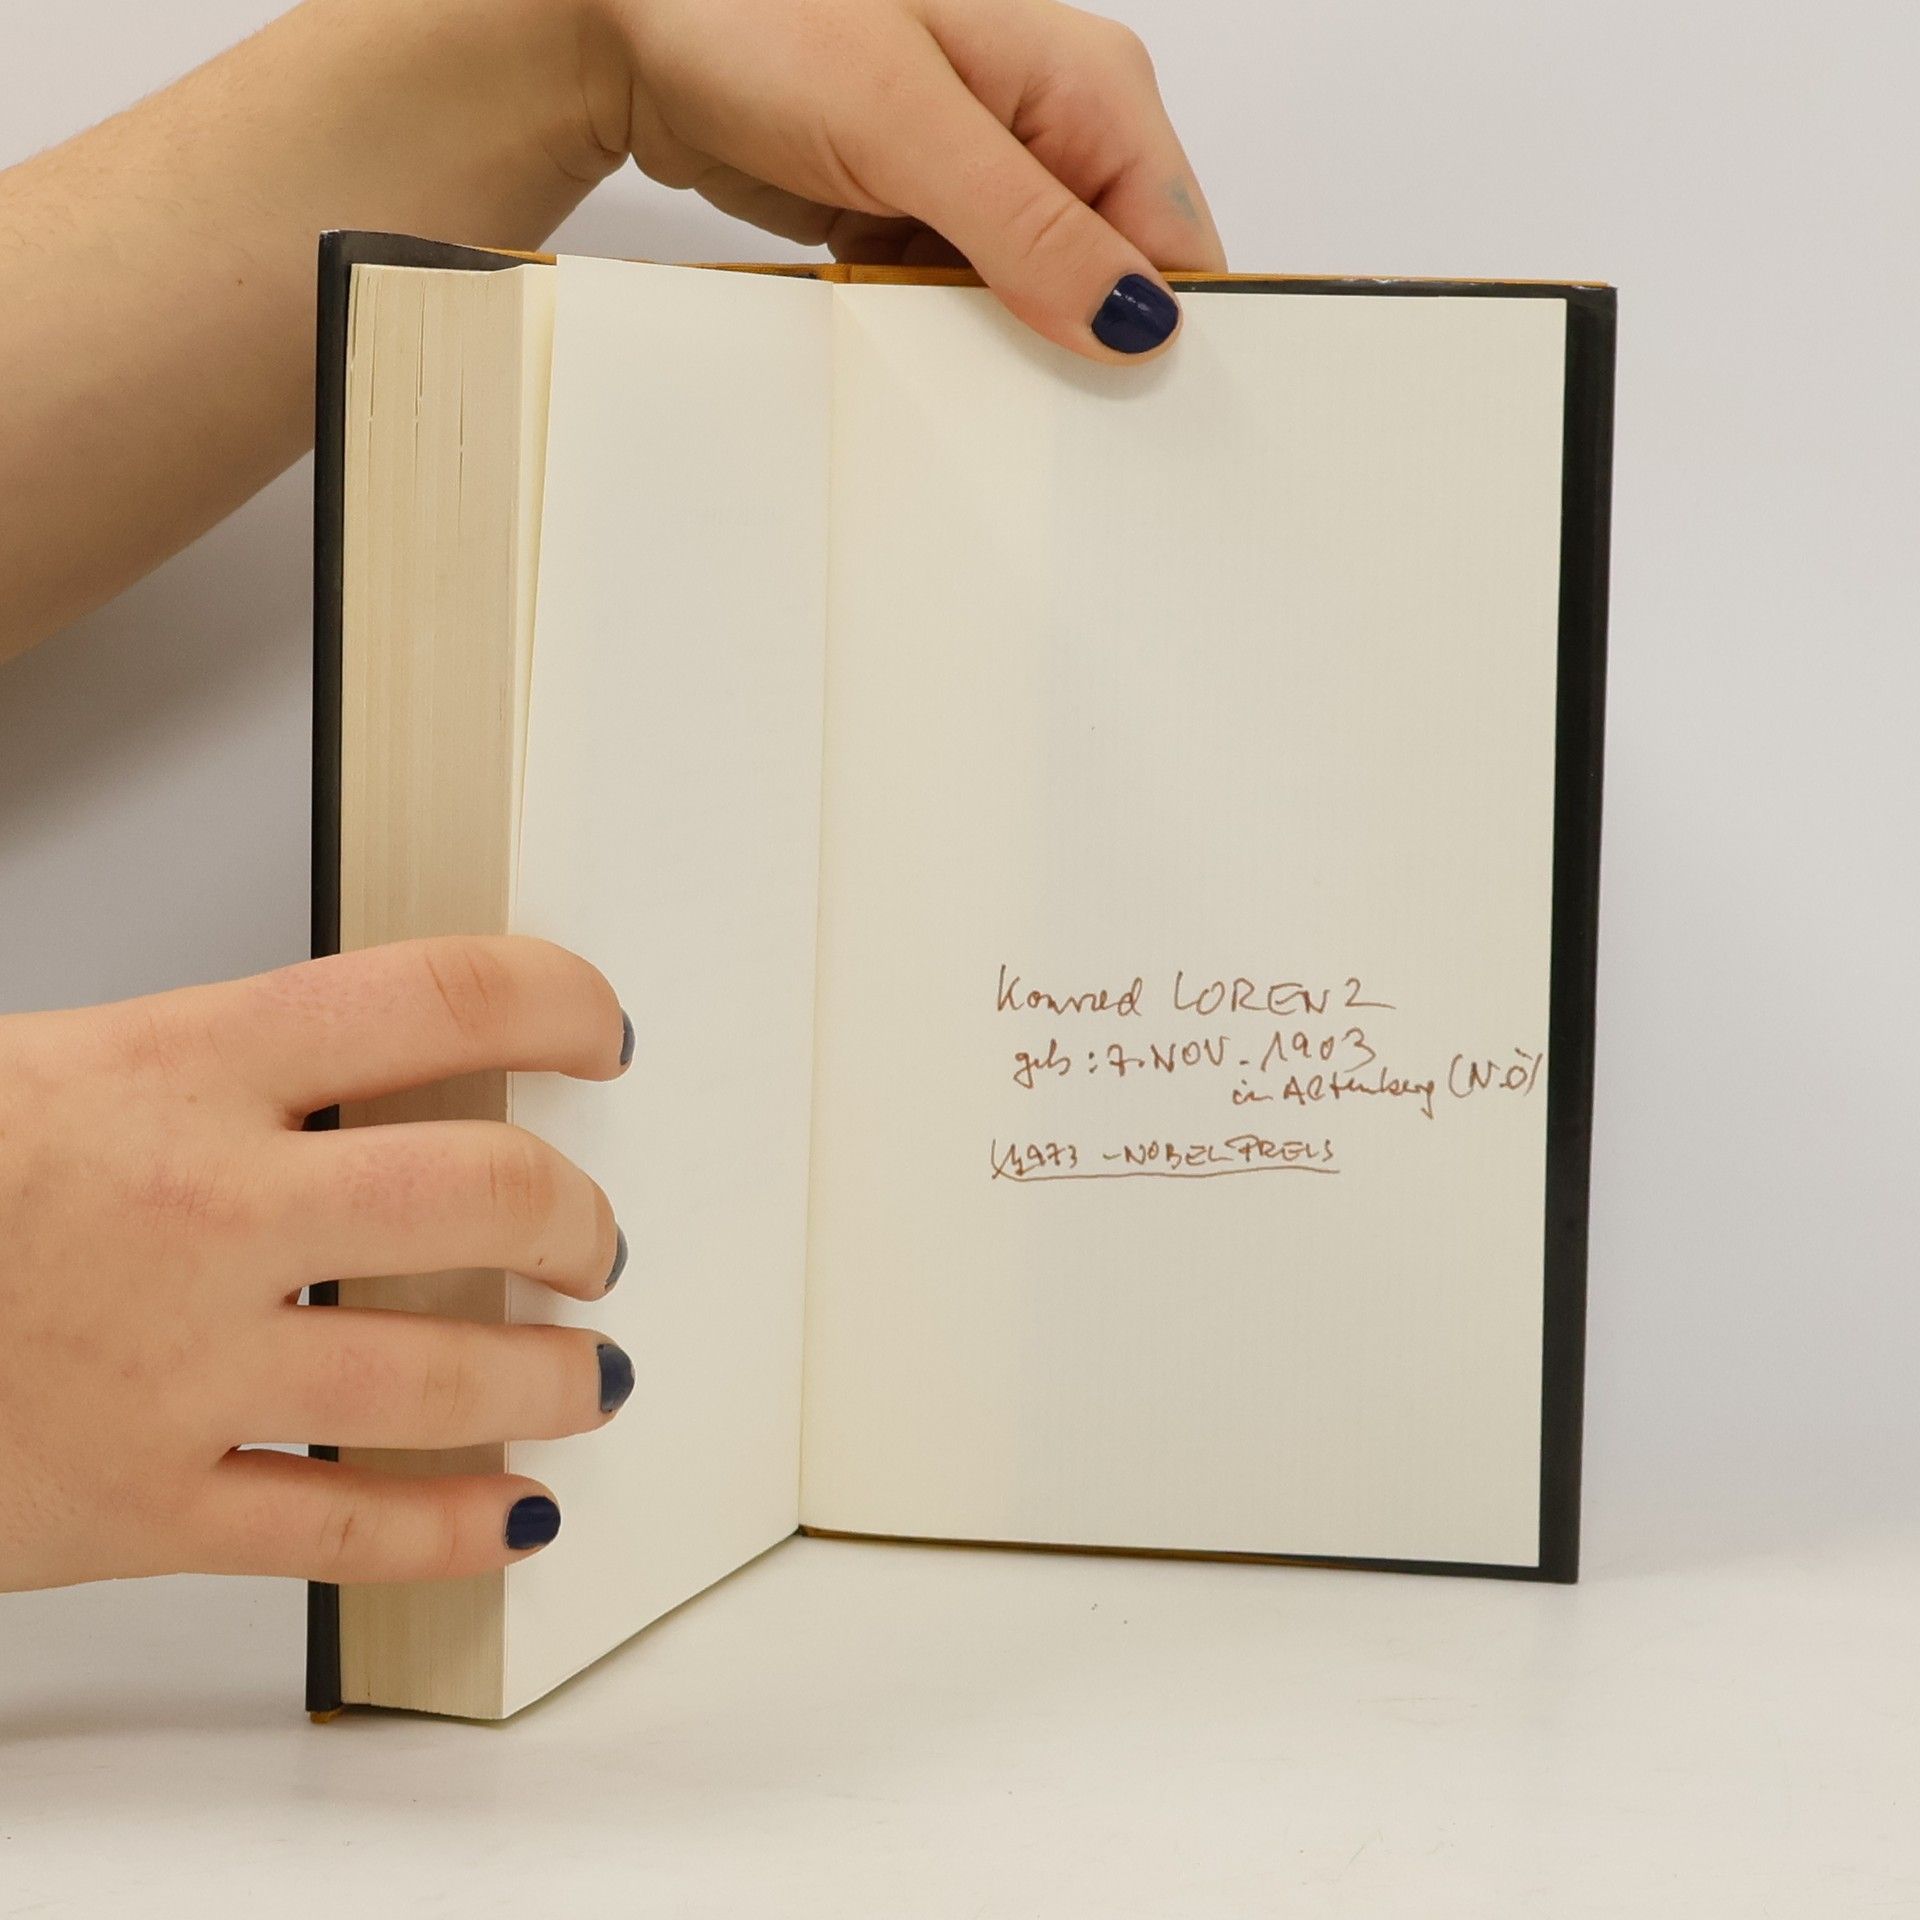 Konrad LORENZ
geb: 7. NOV. 1903
in Altenberg (N.Ö)
1973 - NOBELPREIS